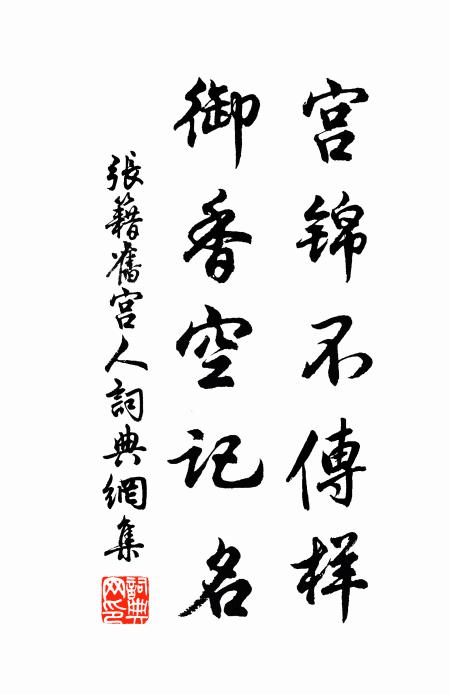 宫锦不傳样
御香空记名
張籍舊宫人詞典網集
詞典网印